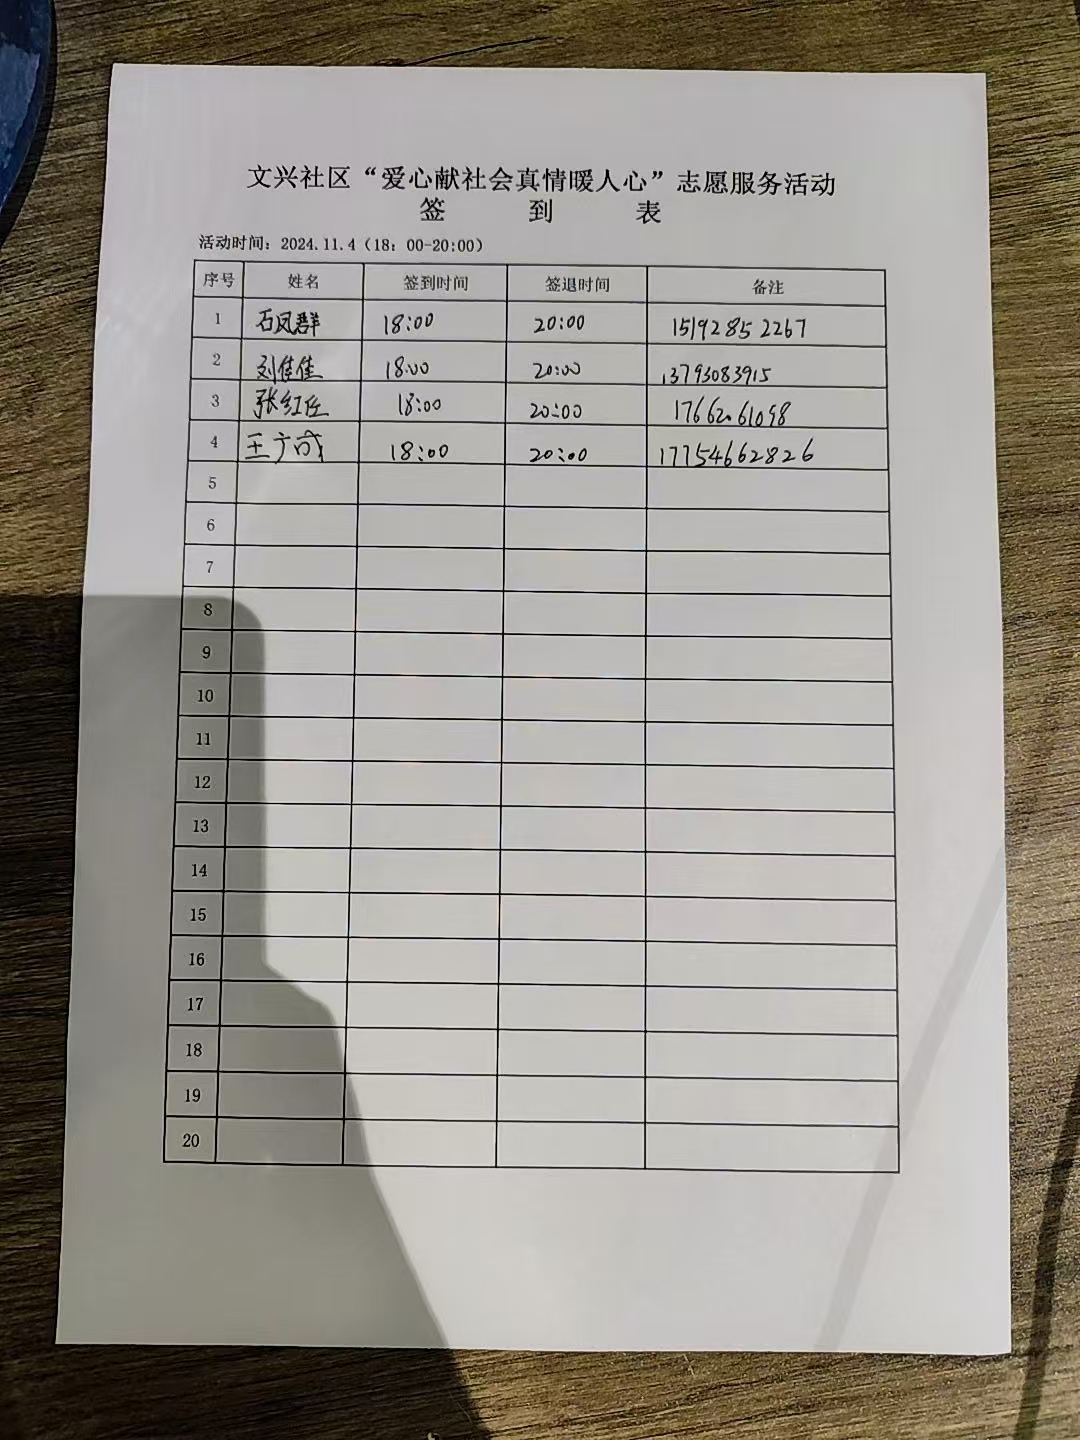 文兴社区“爱心献社会真情暖人心”志愿服务活动
签 到 表
活动时间：2024.11.4（18：00-20:00）
序号 姓名 签到时间 签退时间 备注
1 石凤群 18:00 20:00 15192852267
2 刘佳佳 18:00 20:00 13793083915
3 张红 18:00 20:00 17662061098
4 王广成 18:00 20:00 17754662826
5
6
7
8
9
10
11
12
13
14
15
16
17
18
19
20